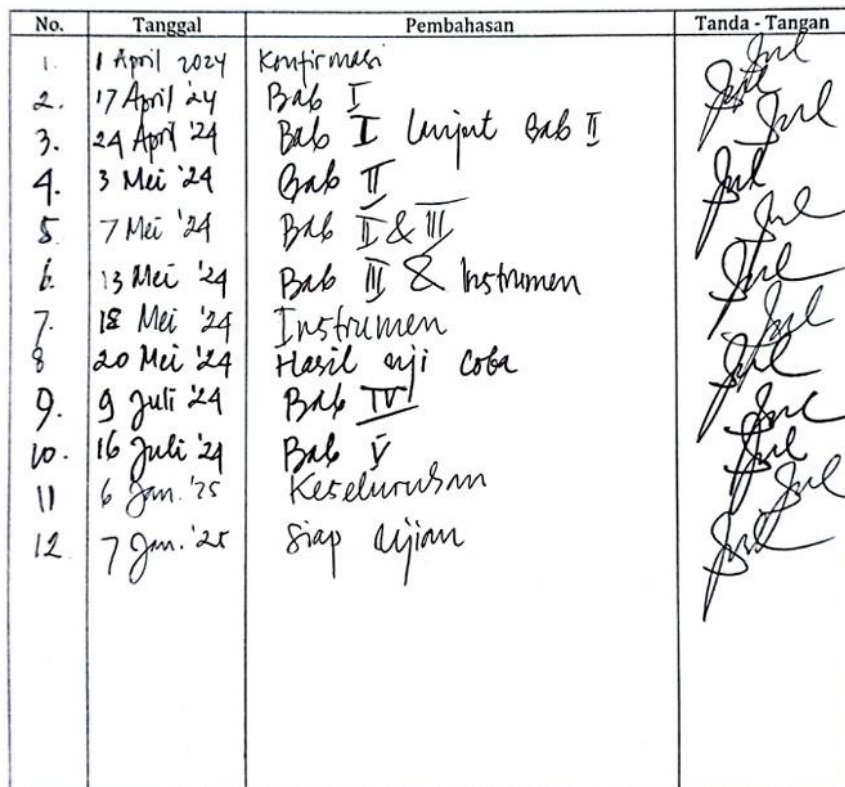 No. Tanggal Pembahasan Tanda - Tangan
1. 1 April 2024 Konfirmasi
2. 17 April '24 Bab I
3. 24 April '24 Bab I lanjut Bab II
4. 3 Mei '24 Bab II
5. 7 Mei '24 Bab II & III
6. 13 Mei '24 Bab III & Instrumen
7. 18 Mei '24 Instrumen
8 20 Mei '24 Hasil uji coba
9. 9 Juli '24 Bab IV
10. 16 Juli '24 Bab V
11 6 Jan. '25 Keseluruhan
12. 7 Jan. '25 Siap ujian